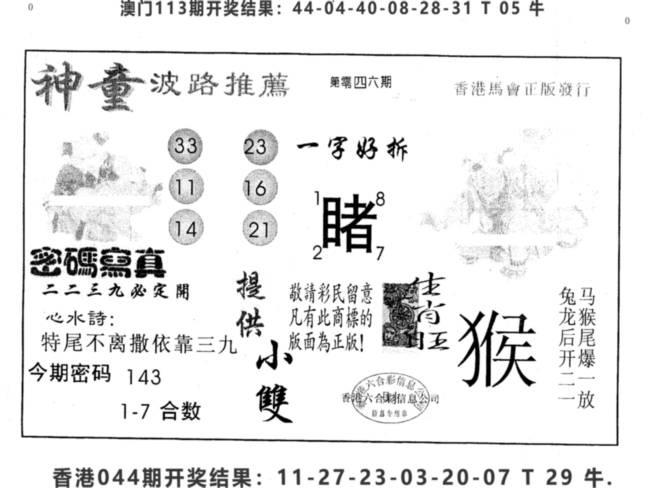 澳门113期开奖结果：44-04-40-08-28-31 T 05 牛
神童波路推薦
第零四六期
香港馬會正版發行
33 23
11 16
14 21
一字好拆
1 8
賭
2 7
密碼寫真
二二三九必定開
心水詩:
特尾不离撒依靠三九
今期密码 143
1-7 合数
提供
小雙
敬請彩民留意
凡有此商標的
版面為正版!
生肖旺
猴
马猴尾爆一放
兔龙后开二一
香港六合彩信息公司
香港044期开奖结果：11-27-23-03-20-07 T 29 牛.